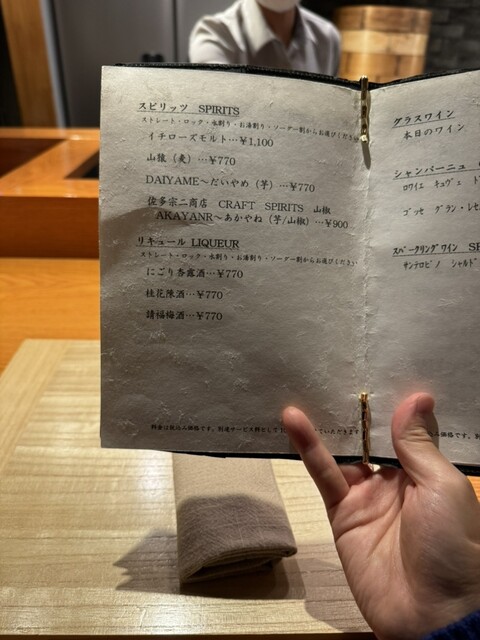 スピリッツ SPIRITS
ストレート・ロック・水割り・お湯割り・ソーダー割からお選びください
イチローズモルト…￥1,100
山猿（麦）…￥770
DAIYAME～だいやめ（芋）…￥770
佐多宗二商店 CRAFT SPIRITS 山椒
AKAYANR～あかやね（芋/山椒）…￥900
リキュール LIQUEUR
ストレート・ロック・水割り・お湯割り・ソーダー割からお選びください
にごり杏露酒…￥770
桂花陳酒…￥770
請福梅酒…￥770
料金は税込み価格です。別途サービス料として
いただきます
グラスワイン
本日のワイン
シャンパーニュ
ロワイエ キュヴェ
ゴッセ グラン・レゼ
スパークリングワイン SP
サンテロ ピノ シャルド
料金は税込み価格です。別